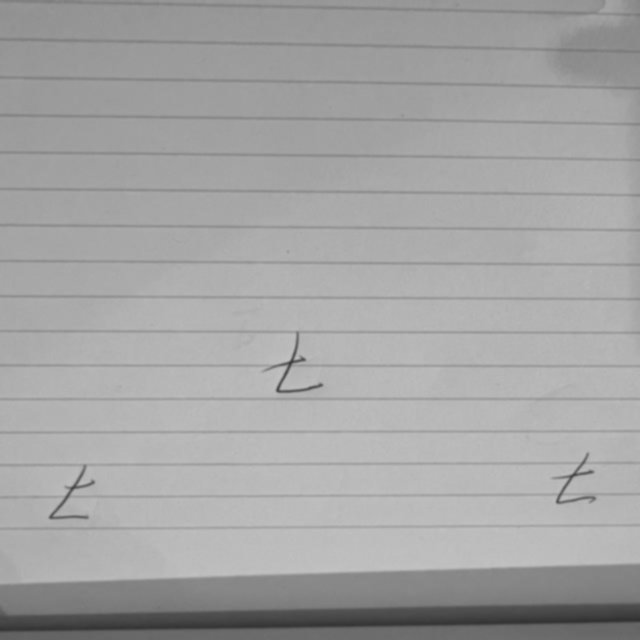 t
t t